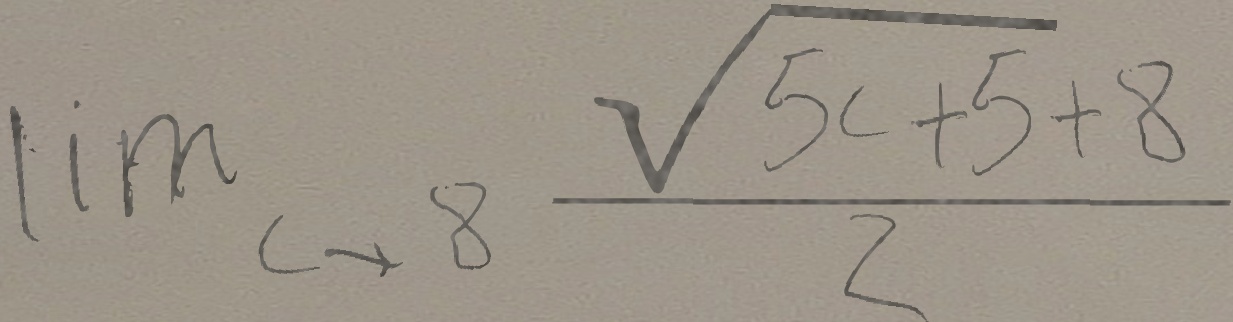 \lim_{c \to 8} \frac{\sqrt{5c+5}+8}{2}